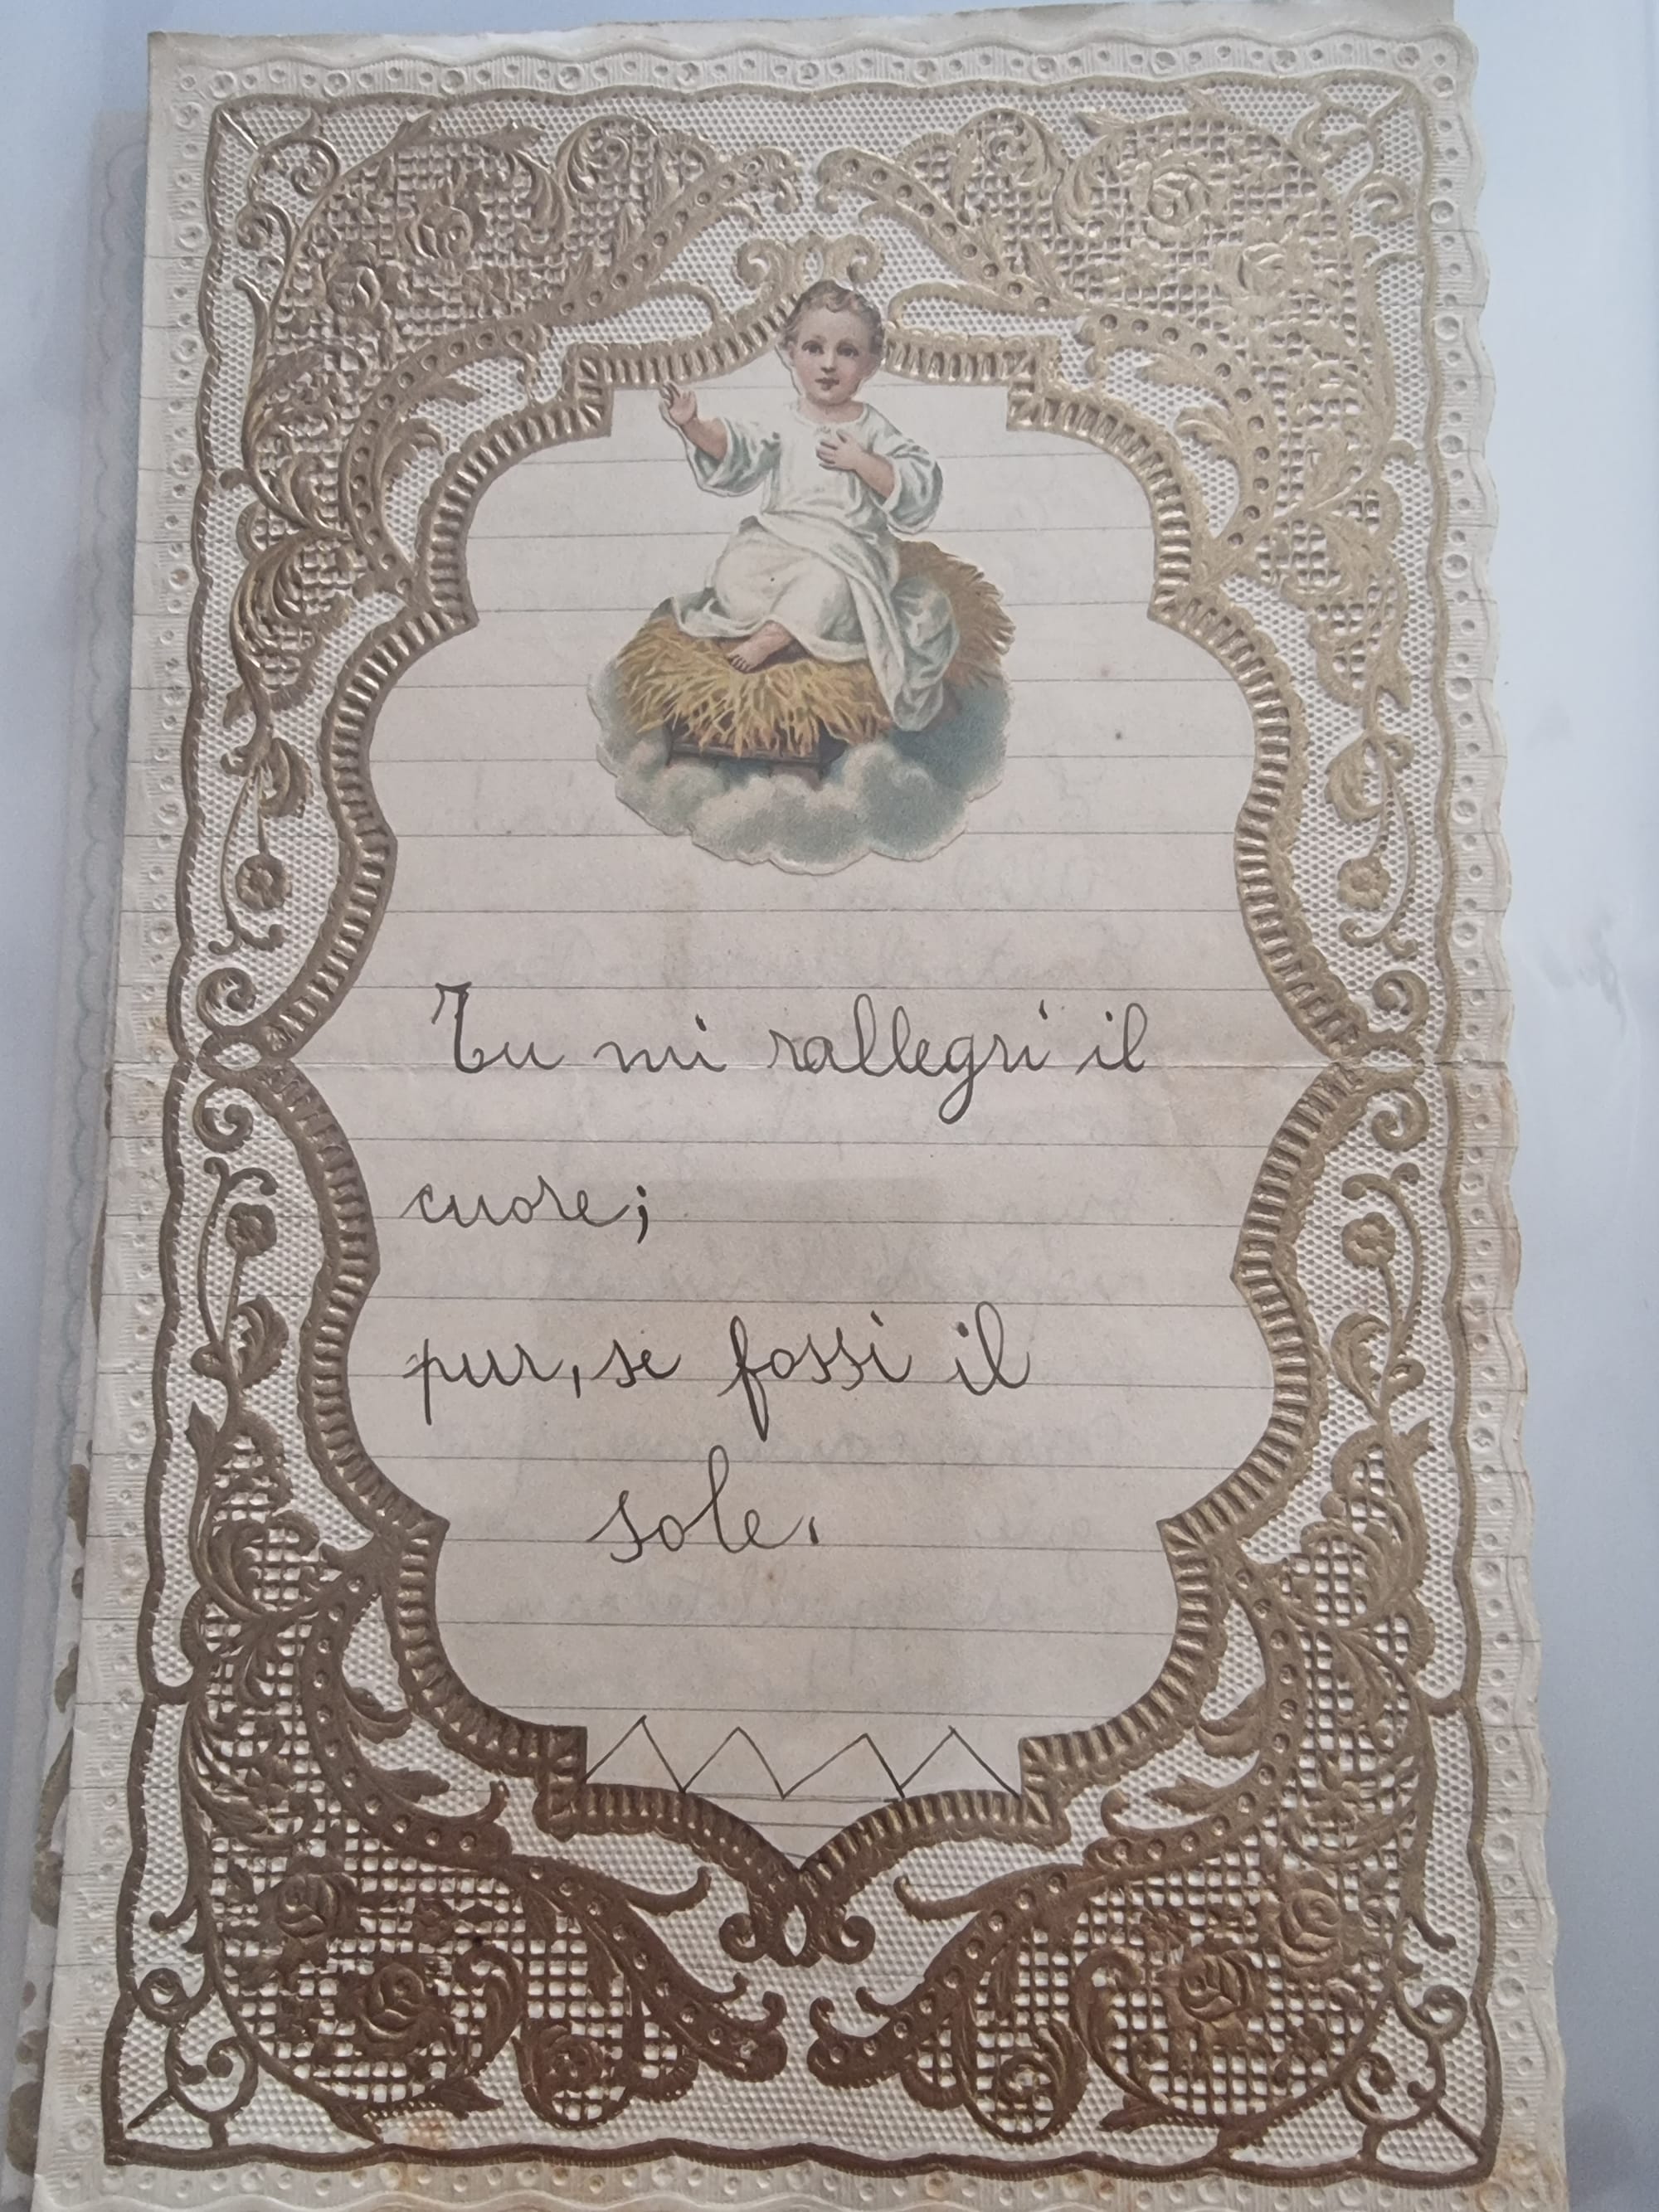 Tu mi rallegri il
cuore;
pur, se fossi il
sole.